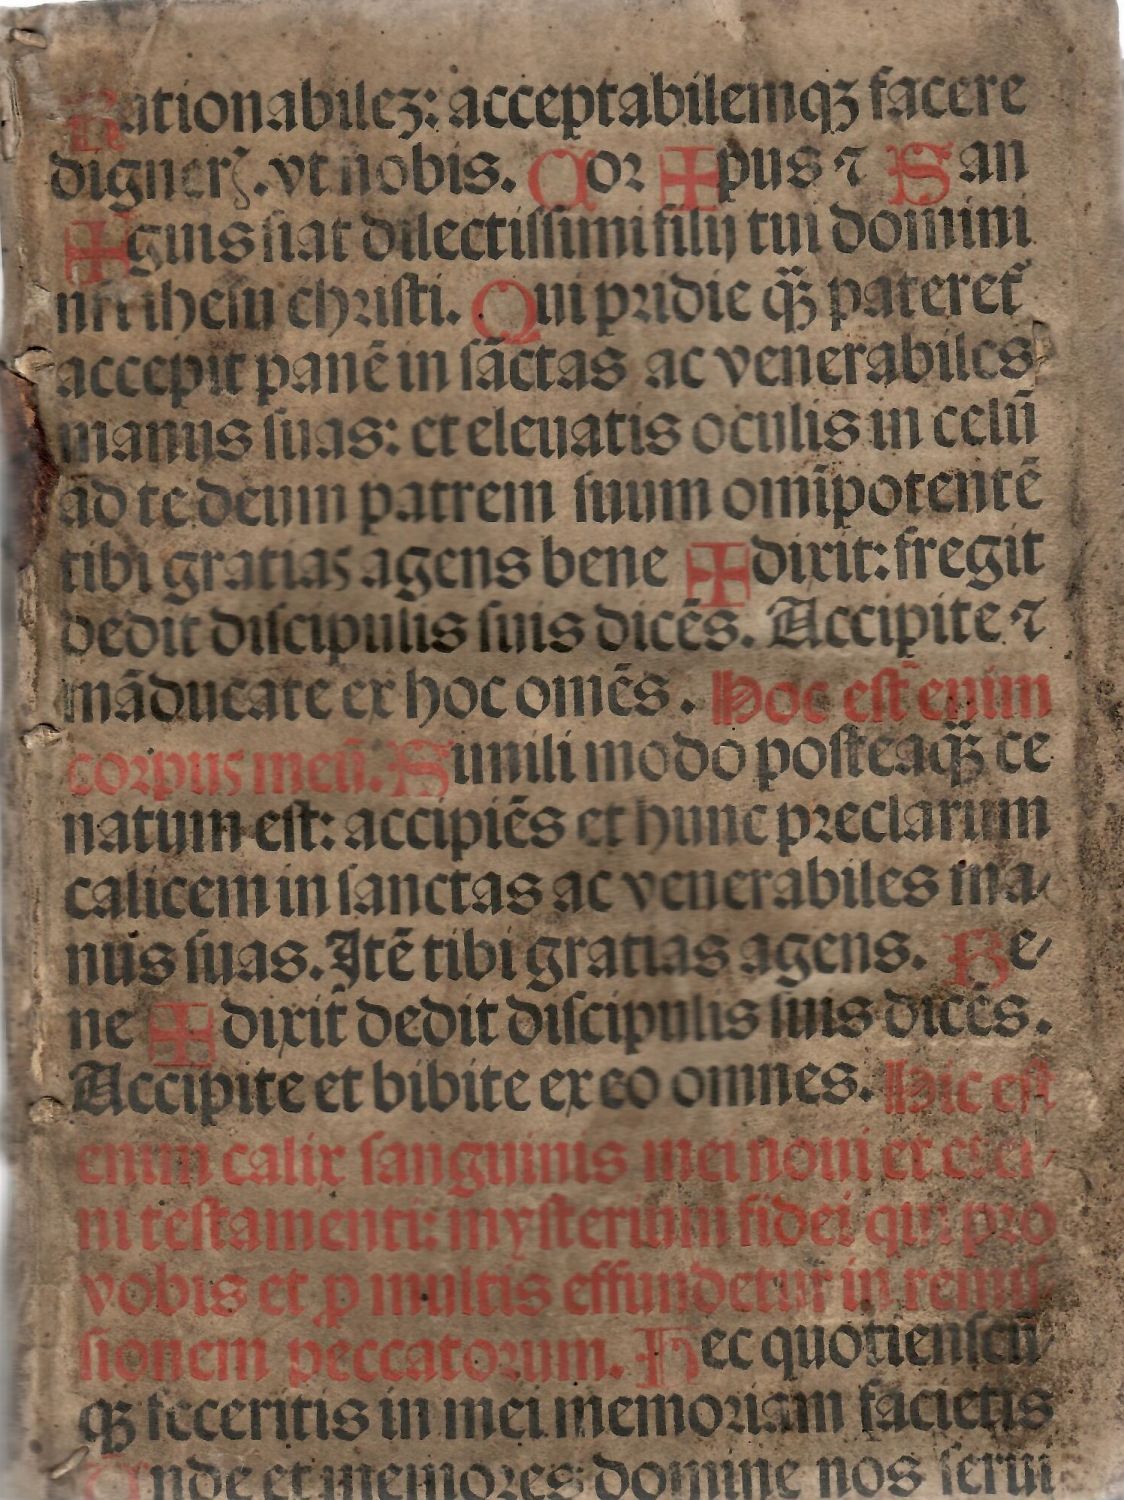 Rationabileꝫ: acceptabilemqꝫ facere
digner. vt nobis. Cor ✠ pus ⁊ San
✠ guis fiat dilectissimi filij tui domini
nr̄i ihesu christi. Qui pridie qꝫ̄ pateret᷑
accepit panē in sāctas ac venerabiles
manus suas: et eleuatis oculis in celū
ad te deum patrem suum omīpotentē
tibi gratias agens bene ✠ dixit: fregit
dedit discipulis suis dicēs. Accipite ⁊
māducate ex hoc omēs. Hoc est̄ enim
corpus meū. Simili modo posteaqꝫ̄ ce
natum est: accipiēs et hunc preclarum
calicem in sanctas ac venerabiles ma/
nus suas. Itē tibi gratias agens. Be/
ne ✠ dixit dedit discipulis suis dicēs.
Accipite et bibite ex eo omnes. Hic est
enim calix sanguinis mei noui et eter/
ni testamenti: mysterium fidei qui pro
vobis et ꝓ multis effundetur in remis
sionem peccatorum. Hec quotienscū/
qꝫ feceritis in mei memoriam facietis
Unde et memores domine nos serui